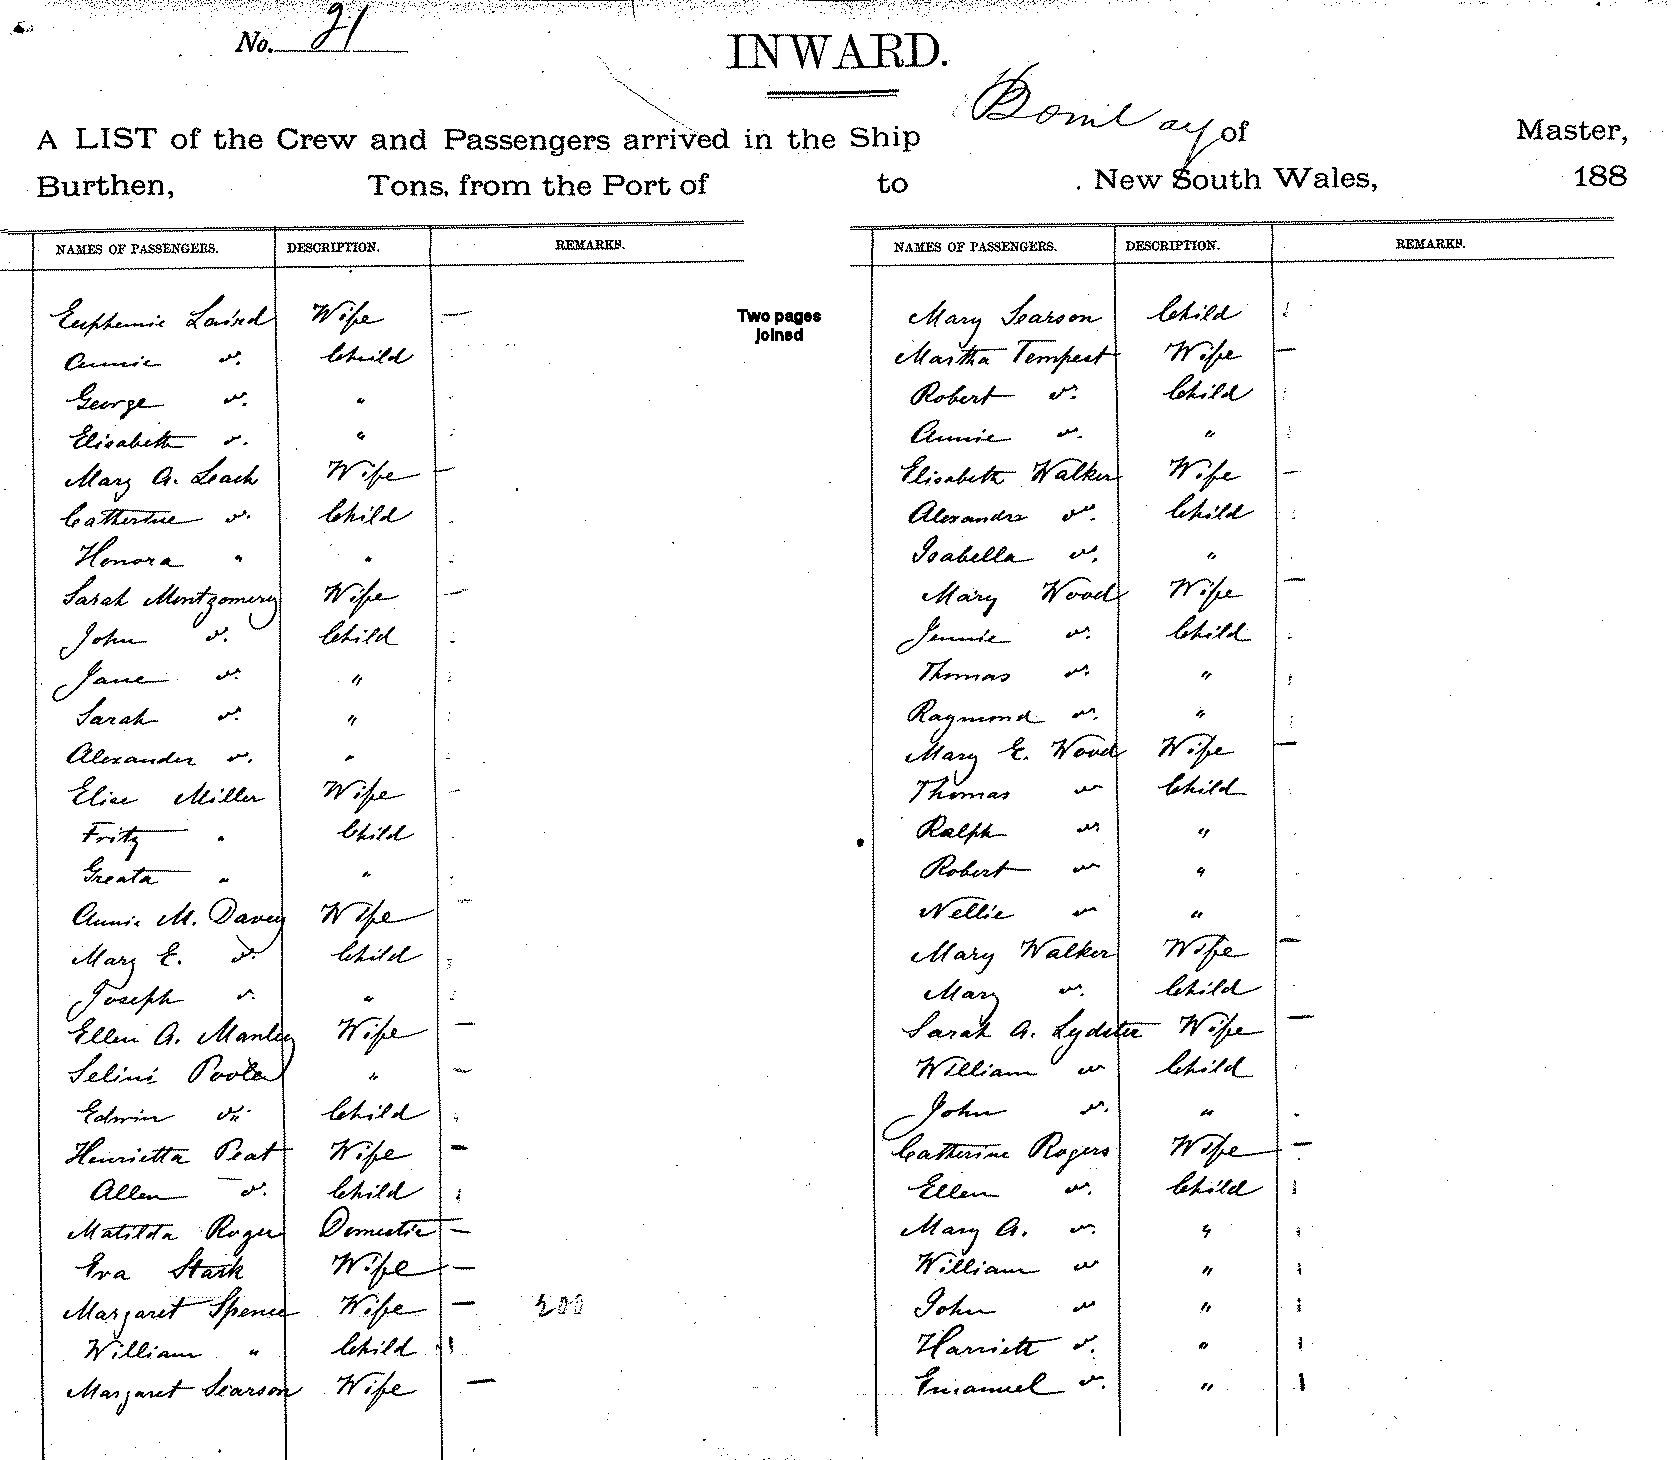 No. 21
INWARD.
A LIST of the Crew and Passengers arrived in the Ship Bombay of Master,
Burthen, Tons, from the Port of to . New South Wales, 188
NAMES OF PASSENGERS. DESCRIPTION. REMARKS.
Euphemie Laired Wife —
Annie do. Child
George do. "
Elisabeth do. "
Mary A. Leach Wife —
Catherine do. Child
Honora " "
Sarah Montgomery Wife —
John do. Child
Jane do. "
Sarah do. "
Alexander do. "
Elise Miller Wife —
Fritz " Child
Greata " "
Annie M. Davey Wife —
Mary E. do. Child
Joseph do. "
Ellen A. Manley Wife —
Selini Poole " —
Edwin do. Child
Henrietta Peat Wife —
Allen do. Child
Matilda Roger Domestic —
Eva Stark Wife —
Margaret Spence Wife —
William " Child
Margaret Searson Wife —
Two pages
joined
NAMES OF PASSENGERS. DESCRIPTION. REMARKS.
Mary Searson Child
Martha Tempest Wife —
Robert do. Child
Annie do. "
Elisabeth Walker Wife —
Alexandre do. Child
Isabella do. "
Mary Wood Wife —
Jennie do. Child
Thomas do. "
Raymond do. "
Mary E. Wood Wife —
Thomas do Child
Ralph do "
Robert do "
Nellie do "
Mary Walker Wife —
Mary do. Child
Sarah A. Lydster Wife —
William do Child
John do. "
Catherine Rogers Wife —
Ellen do. Child
Mary A. do. "
William do "
John do "
Harriett do. "
Emanuel do. "